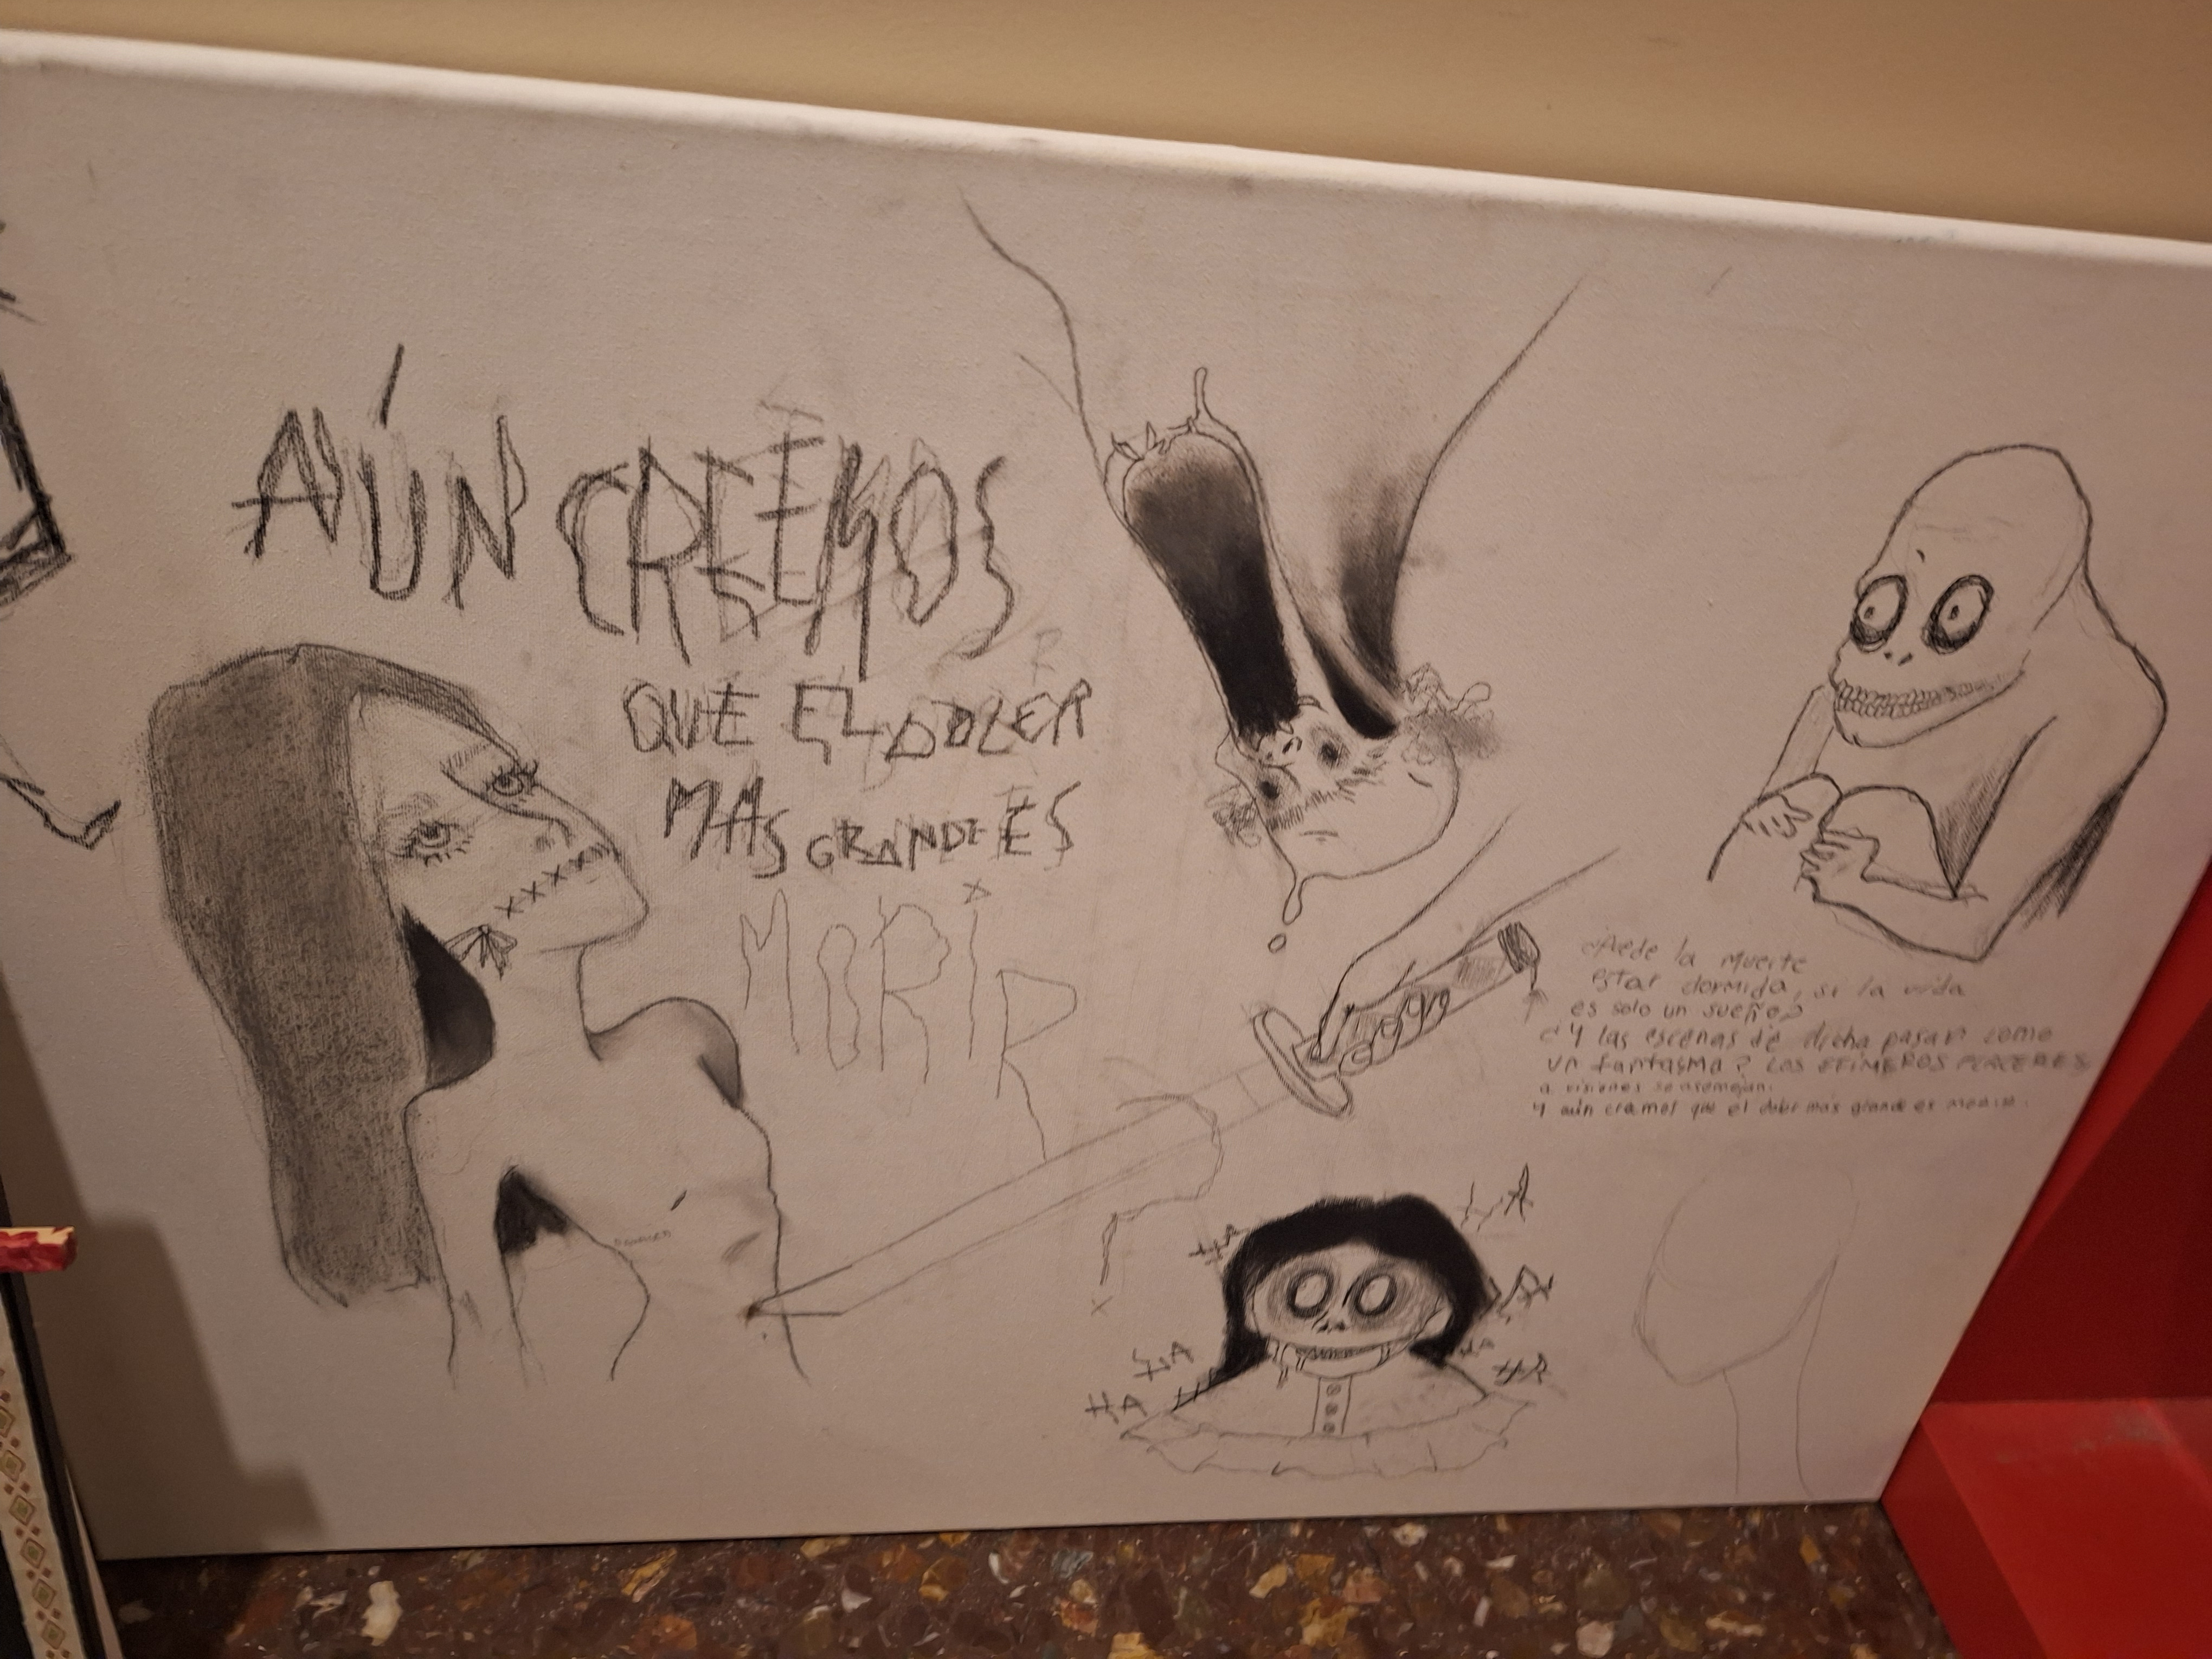 AÚN CREEMOS
QUE EL DOLER
R
MAS GRANDE ES
MORIR
¿Puede la muerte
estar dormida, si la vida
es solo un sueño?
¿Y las escenas de dicha pasar como
un fantasma? LOS EFÍMEROS PLACERES
a visiones se asemejan.
Y aún creemos que el dolor más grande es morir.
HA
HA
HA
HA
HA
HA
HA